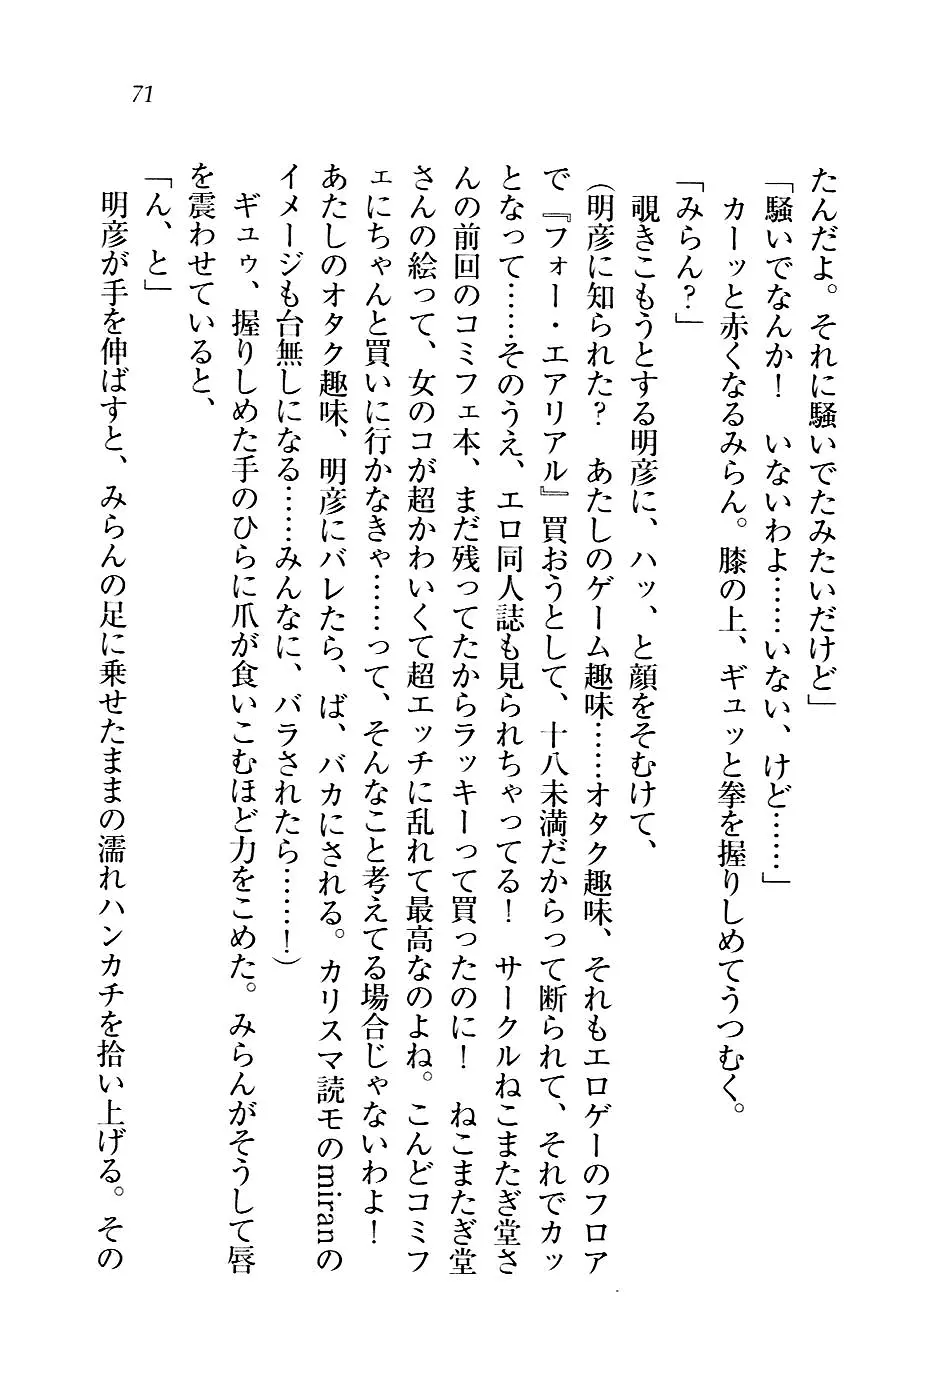 71
たんだよ。それに騒いでたみたいだけど」
「騒いでなんか！　いないわよ……いない、けど……」
　カーッと赤くなるみらん。膝の上、ギュッと拳を握りしめてうつむく。
「みらん？」
　覗きこもうとする明彦に、ハッ、と顔をそむけて、
（明彦に知られた？　あたしのゲーム趣味……オタク趣味、それもエロゲーのフロア
で『フォー・エアリアル』買おうとして、十八未満だからって断られて、それでカッ
となって……そのうえ、エロ同人誌も見られちゃってる！　サークルねこまたぎ堂さ
んの前回のコミフェ本、まだ残ってたからラッキーって買ったのに！　ねこまたぎ堂
さんの絵って、女のコが超かわいくて超エッチに乱れて最高なのよね。こんどコミフ
ェにちゃんと買いに行かなきゃ……って、そんなこと考えてる場合じゃないわよ！
あたしのオタク趣味、明彦にバレたら、ば、バカにされる。カリスマ読モのmiranの
イメージも台無しになる……みんなに、バラされたら……！）
　ギュゥ、握りしめた手のひらに爪が食いこむほど力をこめた。みらんがそうして唇
を震わせていると、
「ん、と」
　明彦が手を伸ばすと、みらんの足に乗せたままの濡れハンカチを拾い上げる。その